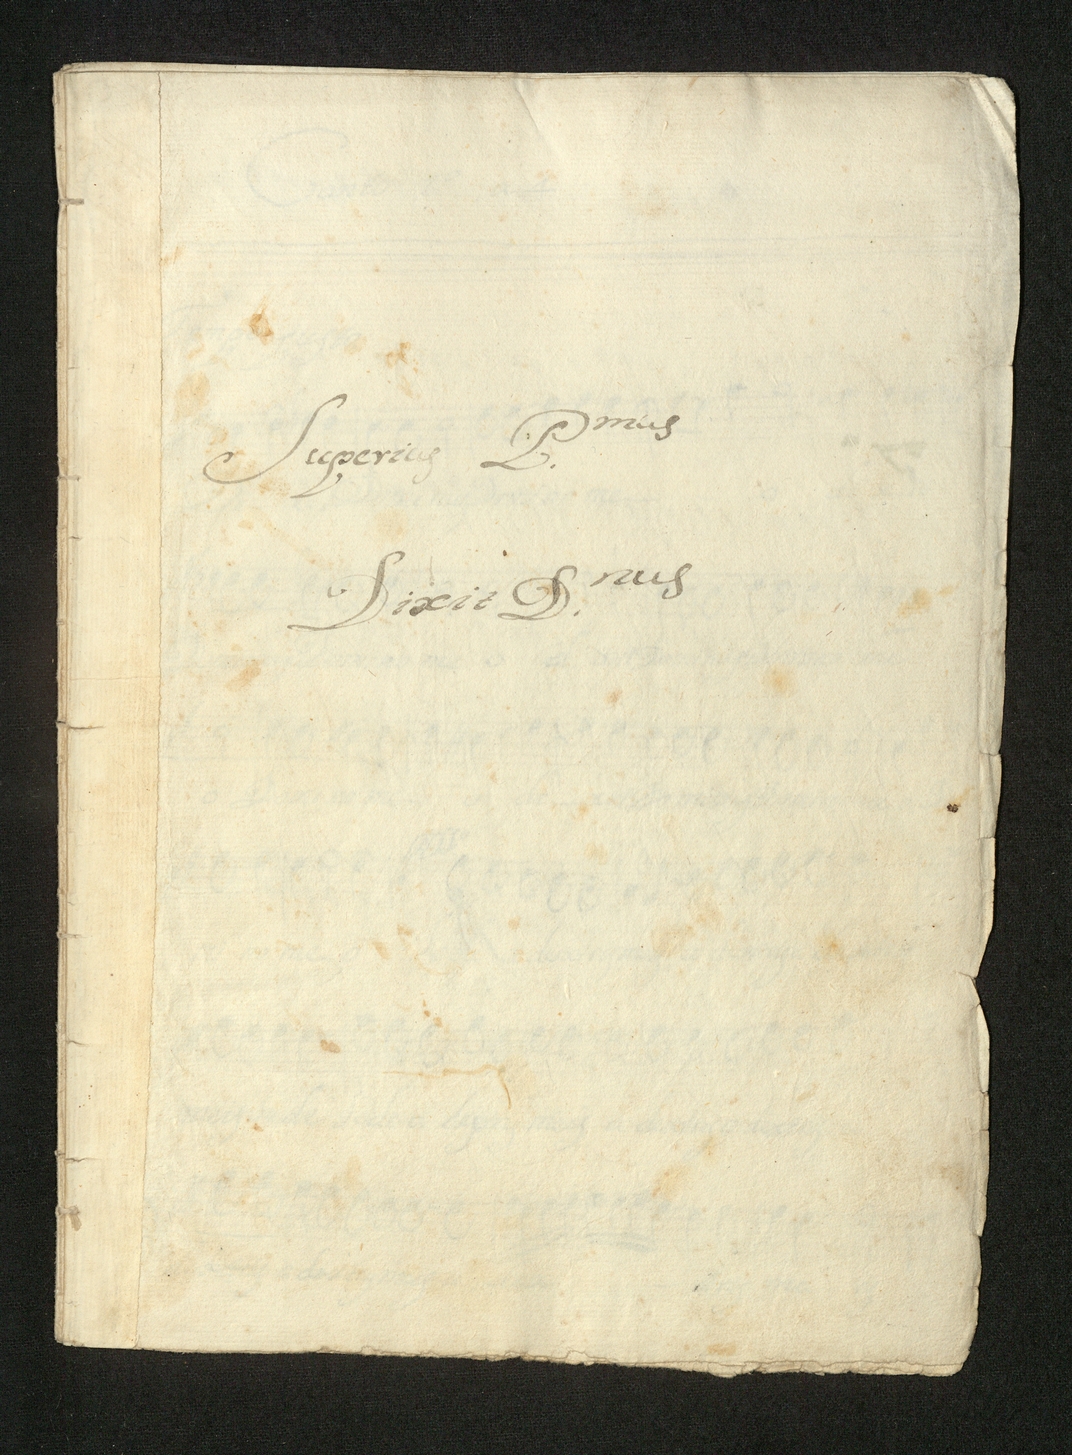 Superius P.mus
Dixit D.nus